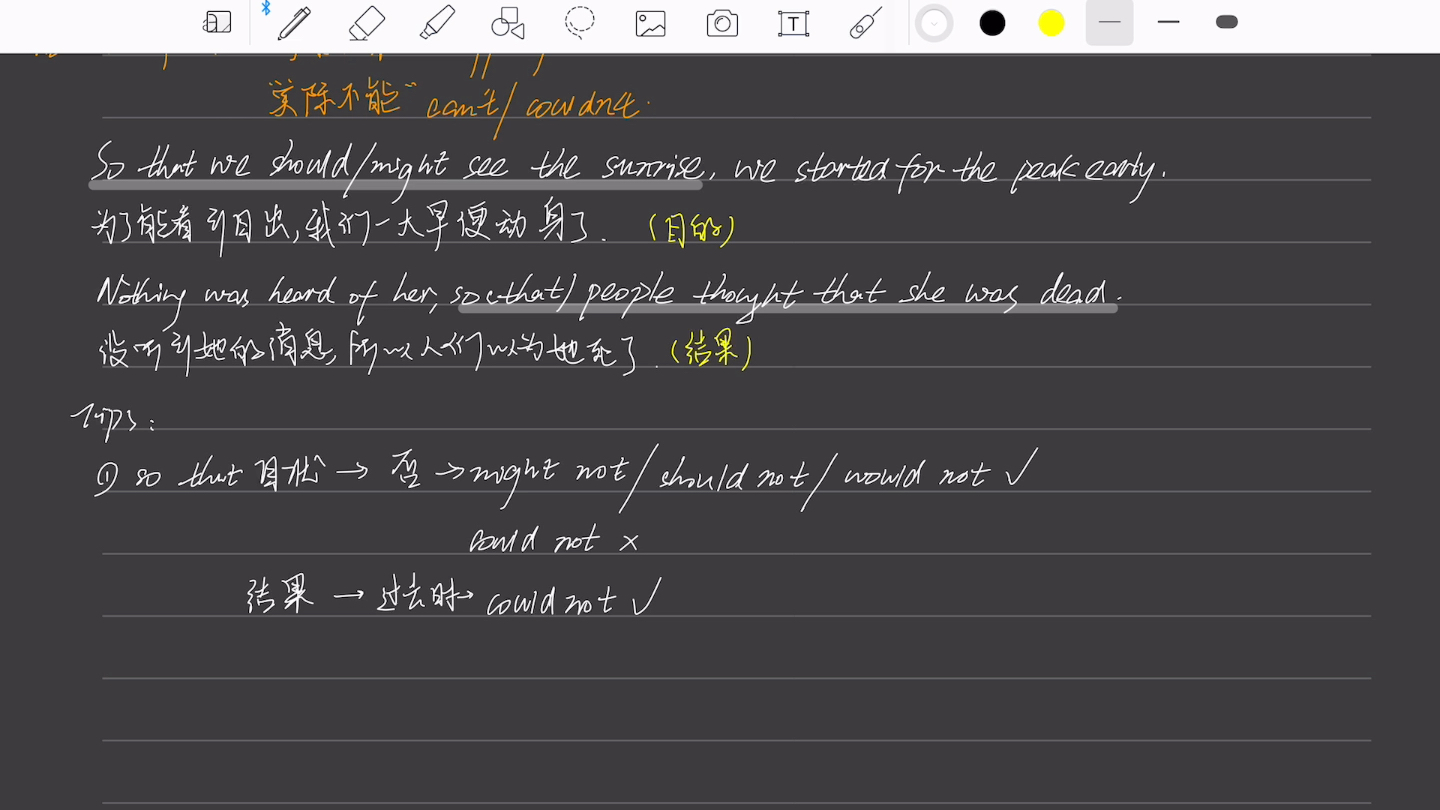 "实际不能" can't/couldn't.
So that we should/might see the sunrise, we started for the peak early.
为了能看到日出,我们一大早便动身了. (目的)
Nothing was heard of her, so (that) people thought that she was dead.
没听到她的消息,所以人们以为她死了. (结果)
Tips:
① so that 目状 → 否 → might not/should not/would not ✓
could not ×
结果 → 过去时→ could not ✓